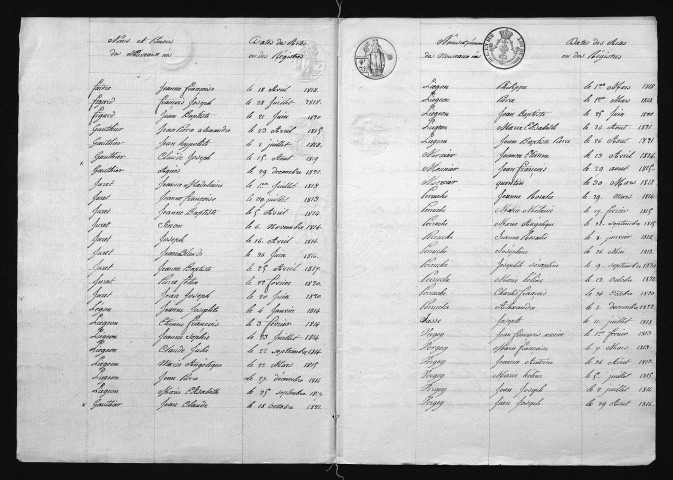 Noms et Prénoms
des Nouveaux nés
Dates des Actes
ou des Régistres
Jeanne françoise le 18 Avril 1818.
Figard François Joseph le 28 Juillet 1818.
Figard Jean Baptiste le 21 Juin 1820
Gauthier Jean Pierre alexandre le 23 Avril 1815
Gauthier Jean hypolite le 2 juillet 1818.
x Gauthier Claude Joseph le 15 Aout 1819
Gauthier Agnes le 29 décembre 1821.
Juret Jeanne Madeleine le 1er Juillet 1813
Juret Jeanne françoise le 30 juillet 1813
Juret Jeanne Baptiste le 5 Avril 1814
Juret Simon le 6 Novembre 1814
Juret Joseph le 16 Avril 1816.
Juret Jean Claude le 26 Juin 1816.
Juret Jeanne Baptiste le 25 Avril 1817
Juret Pierre le 22 février 1820.
Juret Jean Joseph le 20 Juin 1820
Liegeon Jeanne Josephte le 4 Janvier 1814
Liegeon Etienne François le 3 février 1814
Liegeon Jeanne Sophie le 23 Juillet 1814
Liegeon Claude Jules le 22 septembre 1814
Liegeon Marie Angélique le 22 Mars 1815
Liegeon Jean Pierre le 27 décembre 1815
Liegeon Marie Elisabeth le 25 septembre
x Gauthier Jean Claude le 18 Octobre 1821.
Noms et Prénoms
des Nouveaux nés
Dates des Actes
ou des Régistres
Liegeon Philippe le 1er Mars 1818
Liegeon Pierre le 1er Mars 1818
Liegeon Jean Baptiste le 25 Juin 1820
Liegeon Marie Elisabeth le 26 Aout 1821
Liegeon Jean Baptiste Pierre le 26 Aout 1821
Mercier Jeanne Etienne le 13 Avril 1814
Jean François le 29 aout 1815
Mercier quentin le 30 Mars 1818
Perruche Jeanne Rosalie le 29 Mars 1814
Perruche Marie Mélanie le 17 février 1815
Perruche Marie Angélique le 23 septembre 1815
Perruche Jeanne Rosalie le 2 janvier 1818
Perruche Joséphine le 26 Mai
Perruche Josephte Séraphine le 9 septembre 1820
Perruche Marie hélène le 12 Octobre 1820
Perruche Claude François le 24 Octobre 1820
Perruche Alexandre le 2 décembre 1822.
Joseph le 11 juillet 1818
Verguy Jean François xavier le 1er février 1813
Verguy Marie Françoise le 7 Mars 1813
Verguy Jeanne Antoine le 26 Aout 1813
Verguy Marie hélène le 5 juillet 1815
Verguy Jean Joseph le 2 juillet 1816
Verguy Jean Joseph le 29 Aout 1816.